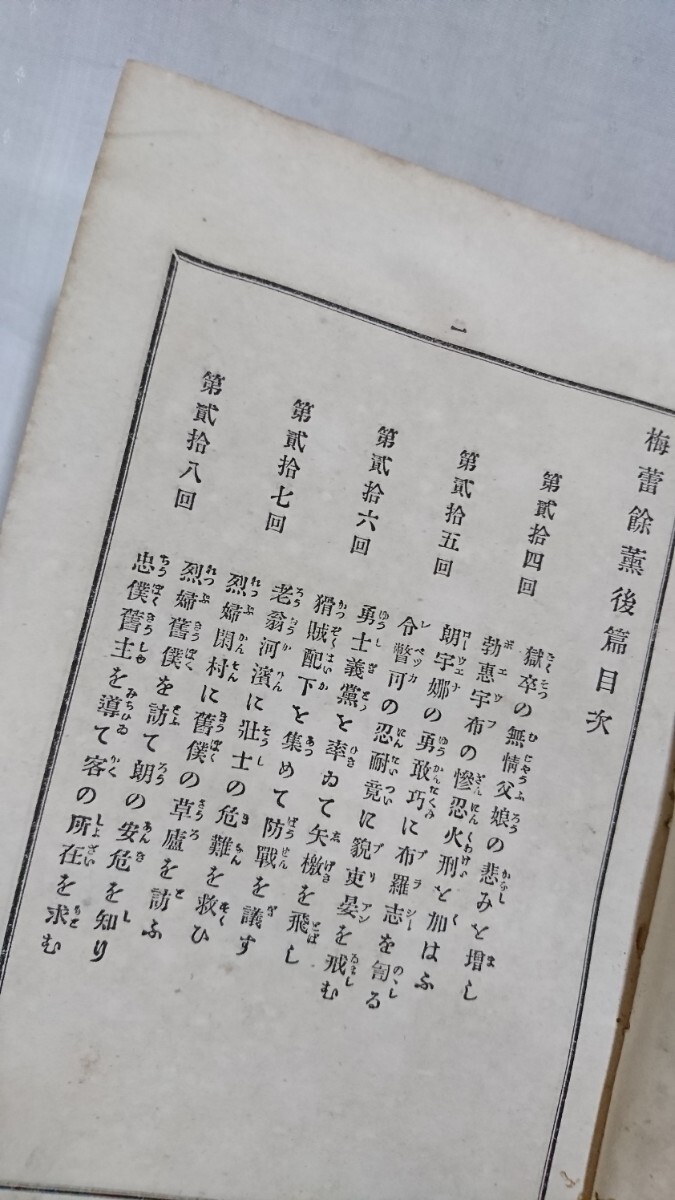 一
梅蕾餘薫後篇目次
第貳拾四回
獄卒の無情父娘の悲みを増し
勃惠宇布の慘忍火刑を加はふ
第貳拾五回
朝宇娜の勇敢巧に布羅志を訇る
令瞥可の忍耐竟に貌吏晏を戒む
第貳拾六回
勇士義黨を率ゐて矢檄を飛し
猾賊配下を集めて防戰を議す
第貳拾七回
老翁河濱に壯士の危難を救ひ
烈婦閑村に舊僕の草廬を訪ふ
第貳拾八回
烈婦舊僕を訪て朗の安危を知り
忠僕舊主を導て客の所在を求む